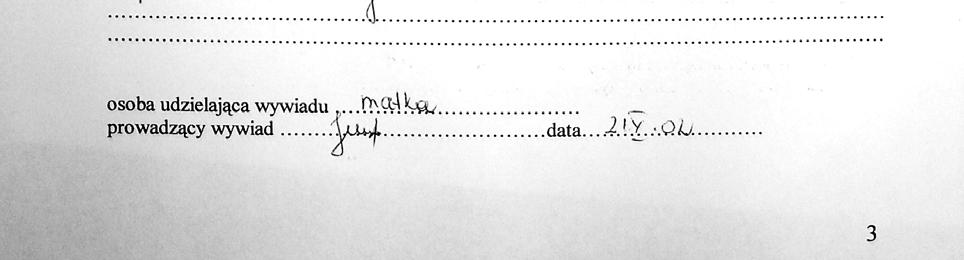 osoba udzielająca wywiadu ....matka........................
prowadzący wywiad ........................................data...21 V .02............
3